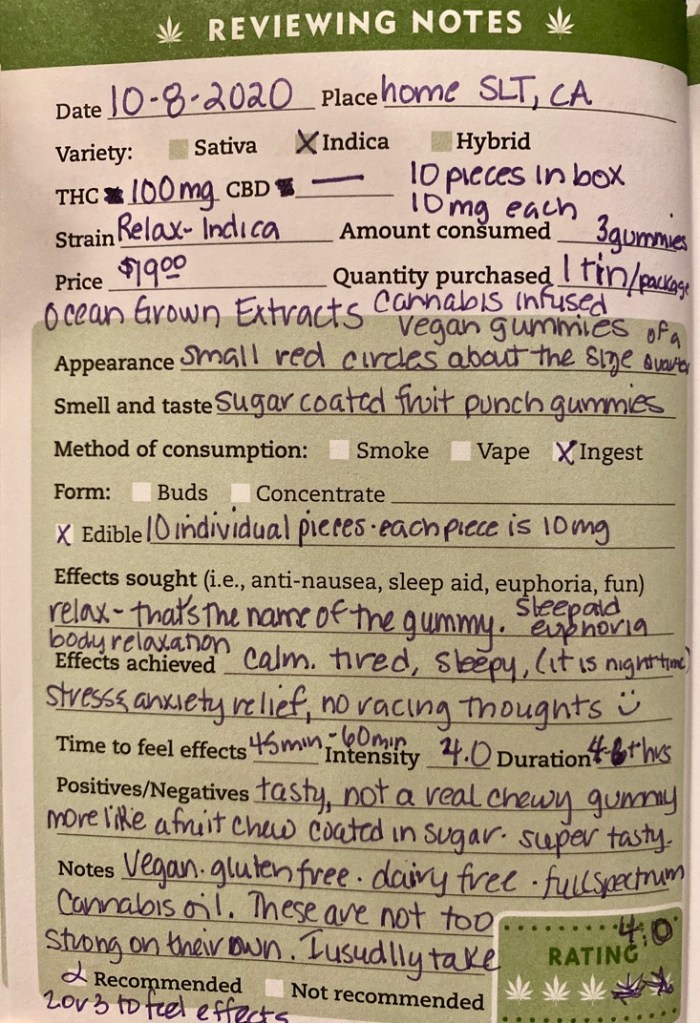 REVIEWING NOTES
Date 10-8-2020 Place home SLT, CA
Variety: Sativa X Indica Hybrid
THC 100mg CBD — 10 pieces in box
10mg each
Strain Relax- Indica Amount consumed 3gummies
Price $19.00 Quantity purchased 1 tin/package
Ocean Grown Extracts Cannabis infused
vegan gummies of a
Appearance small red circles about the size quarter
Smell and taste sugar coated fruit punch gummies
Method of consumption: Smoke Vape X Ingest
Form: Buds Concentrate
X Edible 10 individual pieces · each piece is 10mg
Effects sought (i.e., anti-nausea, sleep aid, euphoria, fun)
relax - that's the name of the gummy. sleep aid
euphoria
body relaxation
Effects achieved calm. tired, sleepy, (it is nighttime)
stress & anxiety relief, no racing thoughts :)
Time to feel effects 45min-60min Intensity 4.0 Duration 4-6+hrs
Positives/Negatives tasty, not a real chewy gummy
more like a fruit chew coated in sugar. super tasty.
Notes Vegan. gluten free. dairy free. full spectrum
Cannabis oil. These are not too
strong on their own. I usually take
4.0
RATING
Recommended Not recommended
2 or 3 to feel effects